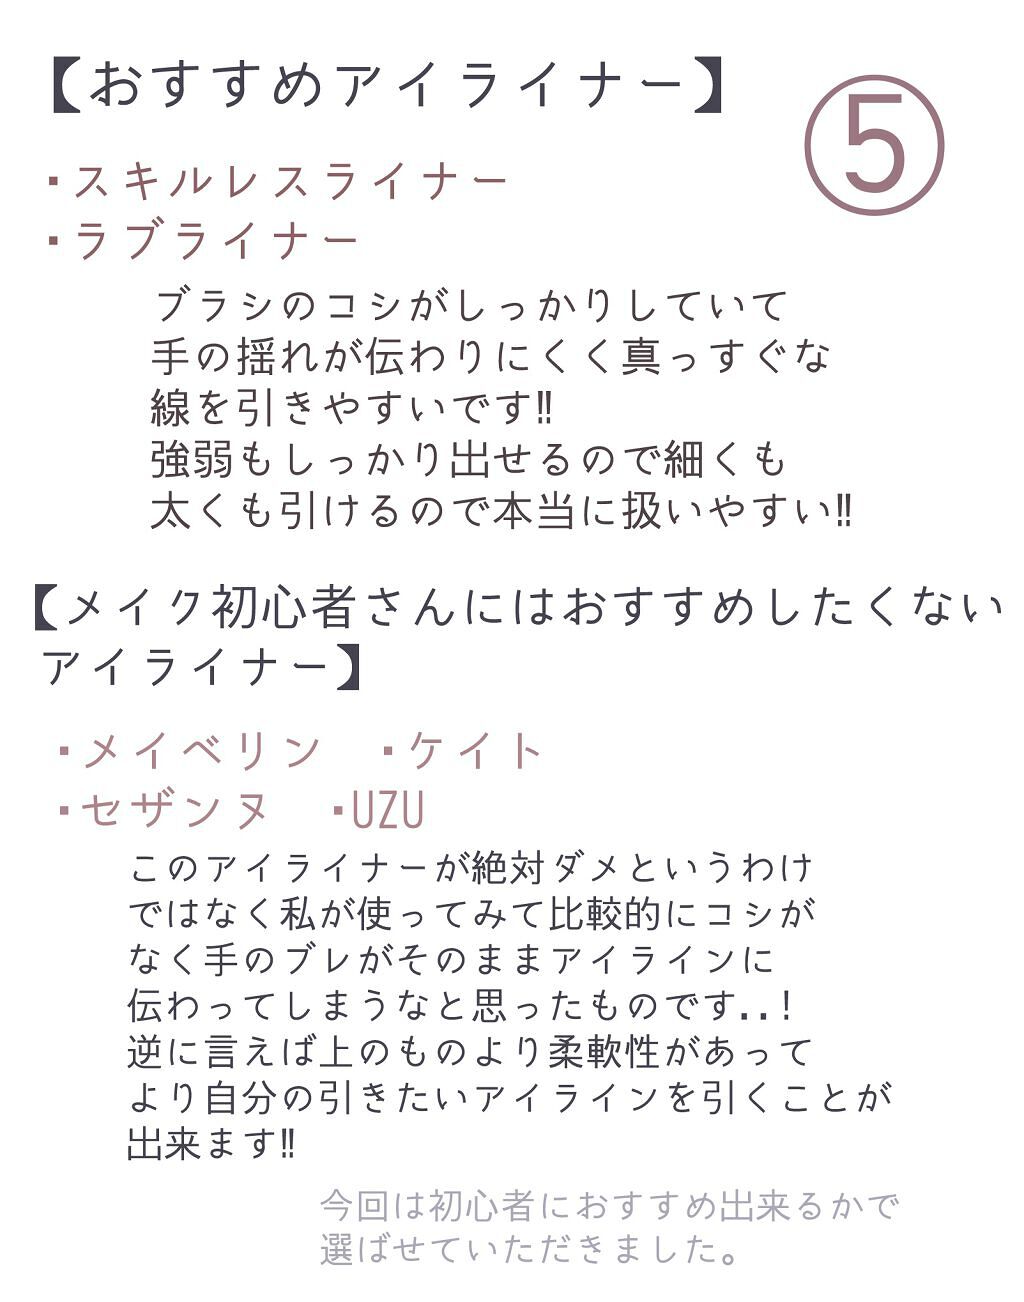 【おすすめアイライナー】
⑤
・スキルレスライナー
・ラブライナー
ブラシのコシがしっかりしていて
手の揺れが伝わりにくく真っすぐな
線を引きやすいです‼
強弱もしっかり出せるので細くも
太くも引けるので本当に扱いやすい‼
【メイク初心者さんにはおすすめしたくない
アイライナー】
・メイベリン ・ケイト
・セザンヌ ・UZU
このアイライナーが絶対ダメというわけ
ではなく私が使ってみて比較的にコシが
なく手のブレがそのままアイラインに
伝わってしまうなと思ったものです..!
逆に言えば上のものより柔軟性があって
より自分の引きたいアイラインを引くことが
出来ます‼
今回は初心者におすすめ出来るかで
選ばせていただきました。